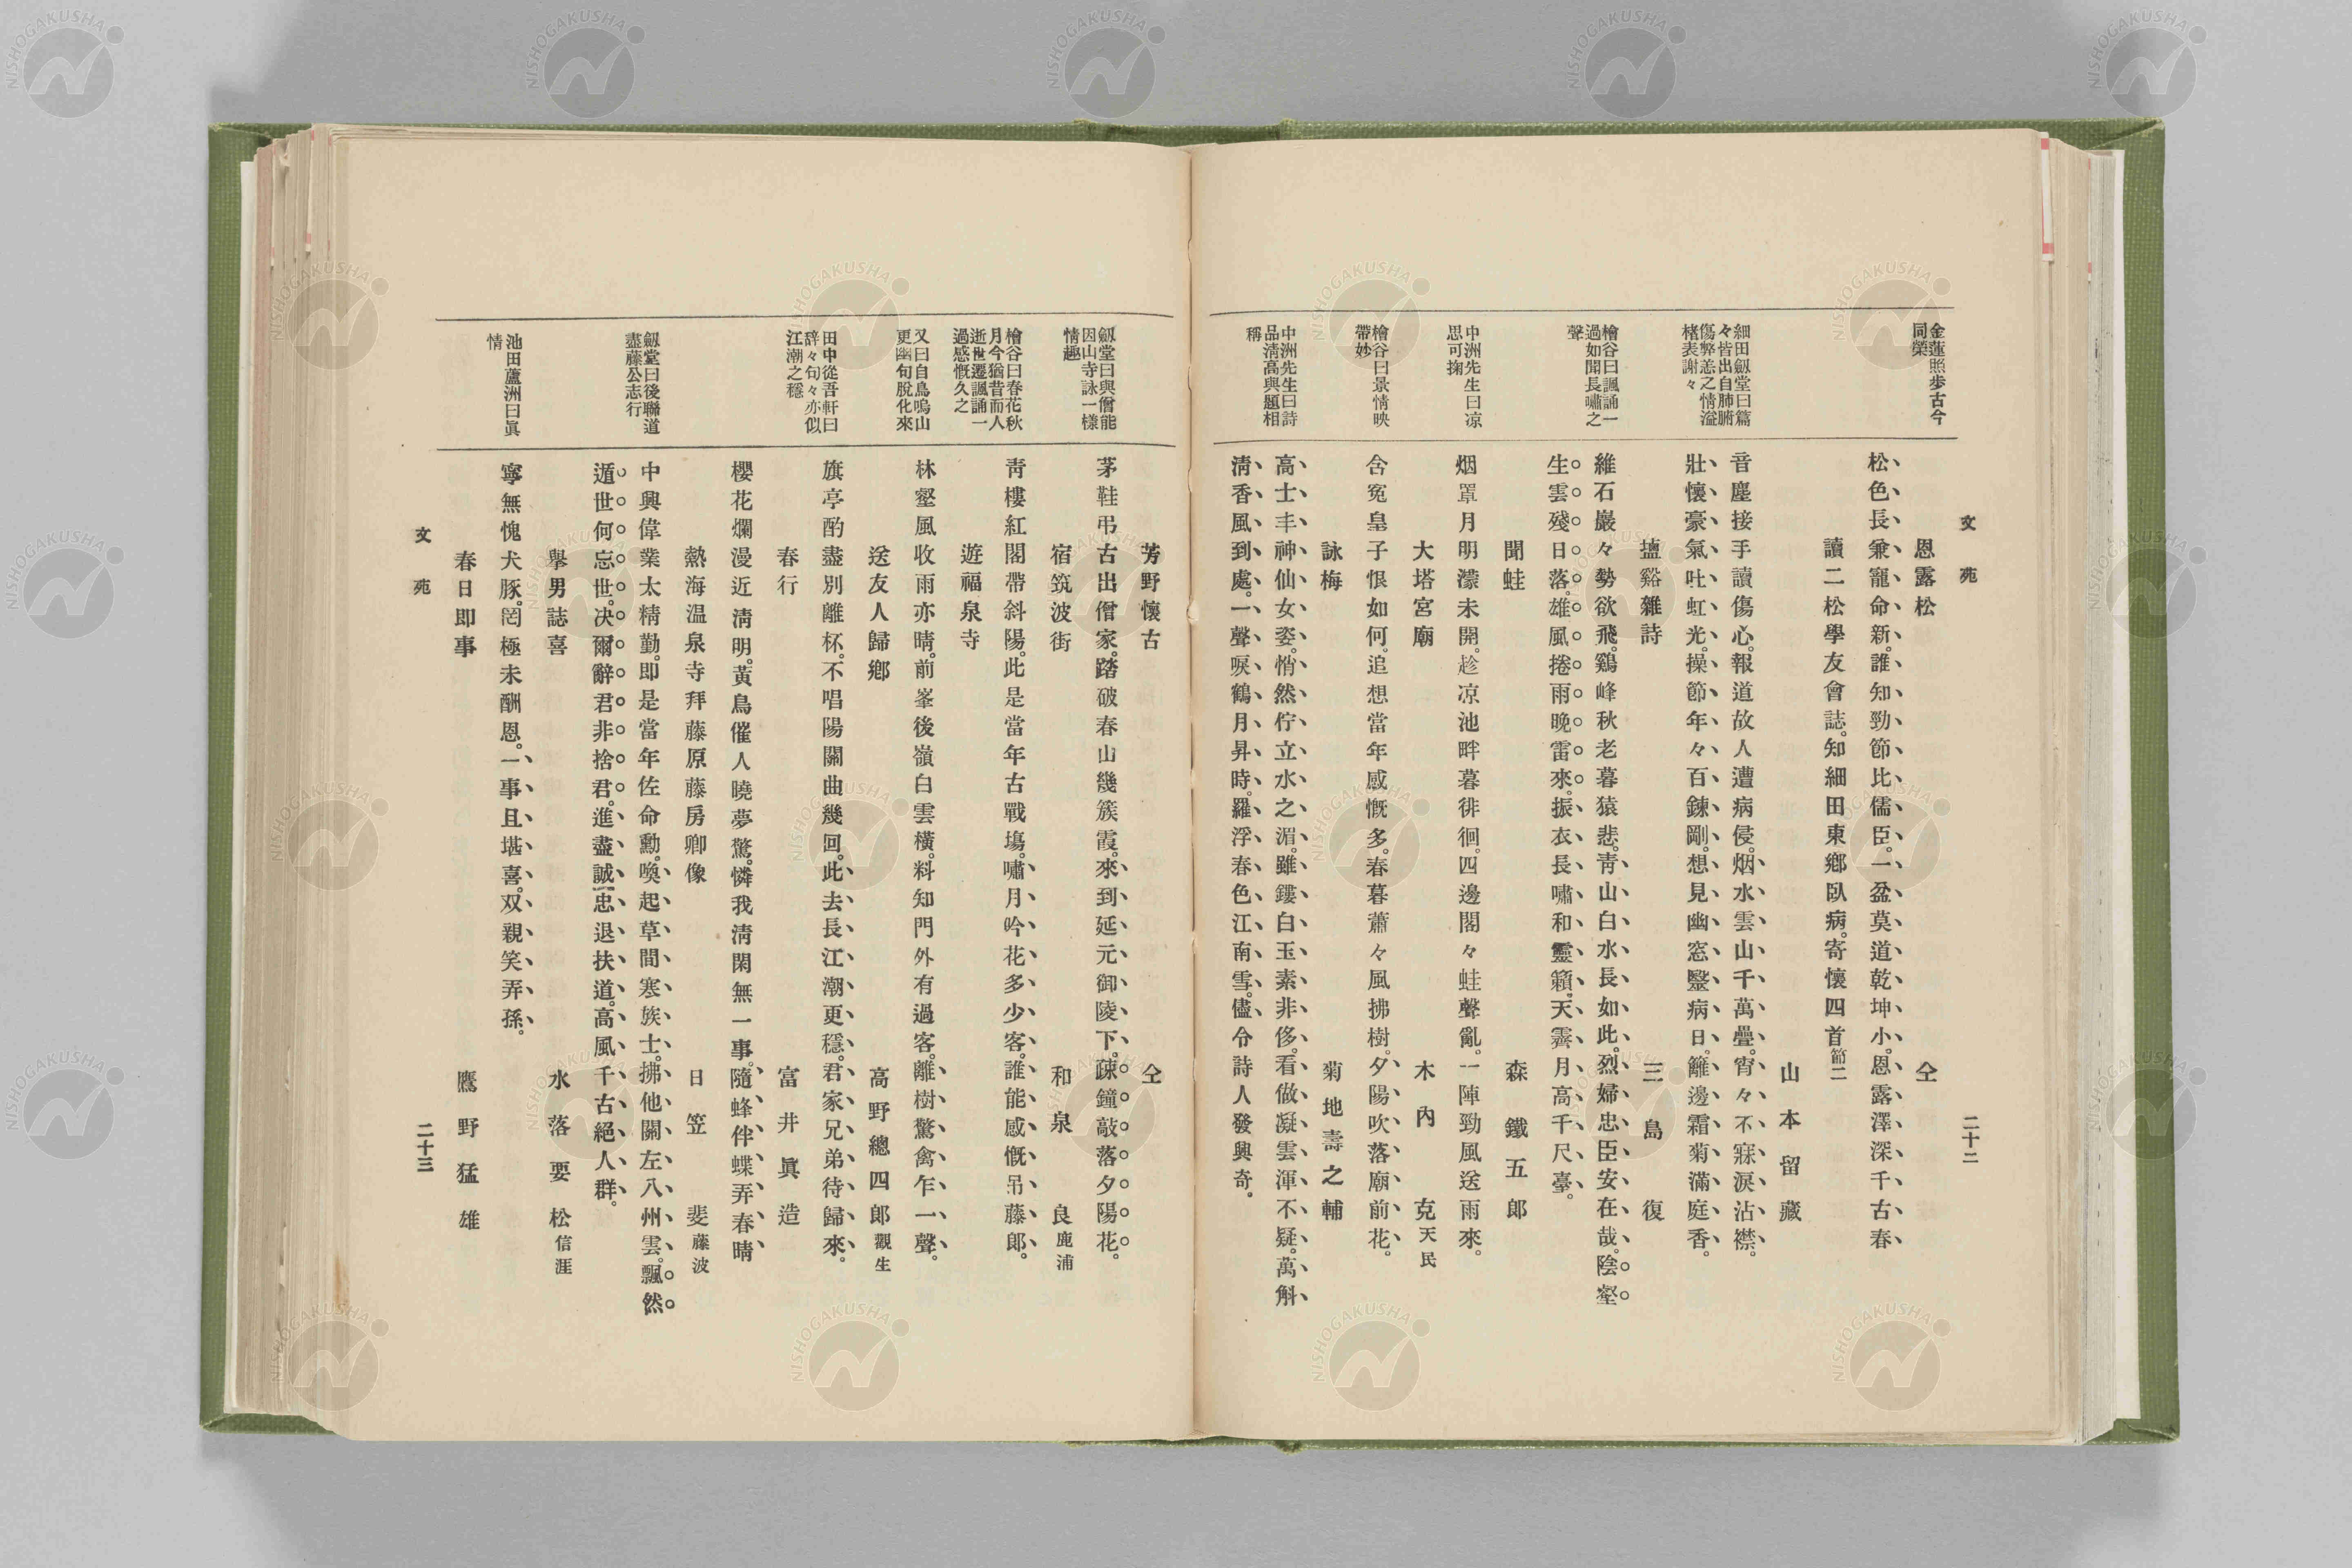 文苑
二十二
金蓮照歩古今
同榮
細田劔堂曰篇
々皆出自肺腑
傷弊恙之情溢
楮表謝々
檜谷曰諷誦一
過如聞長嘯之
聲
中洲先生曰凉
思可掬
檜谷曰景情映
帶妙
中洲先生曰詩
品淸高與題相
稱
恩露松
仝
松色長兼寵命新。誰知勁節比儒臣。一盆莫道乾坤小。恩露澤深千古春
讀二松學友會誌。知細田東鄕臥病。寄懷四首節二
山本留藏
音塵接手讀傷心。報道故人遭病侵。烟水雲山千萬疊。宵々不寐淚沾襟。
壯懷豪氣吐虹光。操節年々百鍊剛。想見幽窓鑿病日。籬邊霜菊滿庭香。
鹽谿雜詩
三島復
維石巖々勢欲飛。鷄峰秋老暮猿悲。靑山白水長如此。烈婦忠臣安在哉。陰壑
生雲殘日落。雄風捲雨晚雷來。振衣長嘯和靈籟。天霽月高千尺臺。
聞蛙
森鐵五郎
烟罩月明濛未開。趁凉池畔暮徘徊。四邊閣々蛙聲亂。一陣勁風送雨來。
大塔宮廟
木內克天民
含寃皇子恨如何。追想當年感慨多。春暮蕭々風拂樹。夕陽吹落廟前花。
詠梅
菊地壽之輔
高士丰神仙女姿。悄然佇立水之湄。雖鏤白玉素非侈。看做凝雲渾不疑。萬斛
淸香風到處。一聲唳鶴月昇時。羅浮春色江南雪。儘令詩人發興奇。
劔堂曰與僧能
因山寺詠一樣
情趣
檜谷曰春花秋
月今猶昔而人
逝世遷諷誦一
過感慨久之
又曰自鳥鳴山
更幽句脫化來
田中從吾軒曰
辞々句々亦似
江潮之穩
劔堂曰後聯道
盡藤公志行
池田蘆洲曰眞
情
芳野懷古
仝
茅鞋弔古出僧家。踏破春山幾簇霞。來到延元御陵下。疎鐘敲落夕陽花。
宿筑波街
和泉良鹿浦
靑樓紅閣帶斜陽。此是當年古戰塲。嘯月吟花多少客。誰能感慨吊藤郎。
遊福泉寺
林壑風收雨亦晴。前峯後嶺白雲橫。料知門外有過客。離樹驚禽乍一聲。
送友人歸鄕
高野總四郎觀生
旗亭酌盡別離杯。不唱陽關曲幾回。此去長江潮更穩。君家兄弟待歸來。
春行
富井眞造
櫻花爛漫近淸明。黃鳥催人曉夢驚。憐我淸閑無一事。隨蜂伴蝶弄春晴
熱海温泉寺拜藤原藤房卿像
日笠斐藤波
中興偉業太精勤。即是當年佐命勳。喚起草間寒族士。拂他關左八州雲。飄然
遁世何忘世。决爾辭君非捨君。進盡誠忠退扶道。高風千古絕人群。
擧男誌喜
水落要松信涯
寧無愧犬豚。罔極未酬恩。一事且堪喜。双親笑弄孫。
春日即事
鷹野猛雄
文苑
二十三